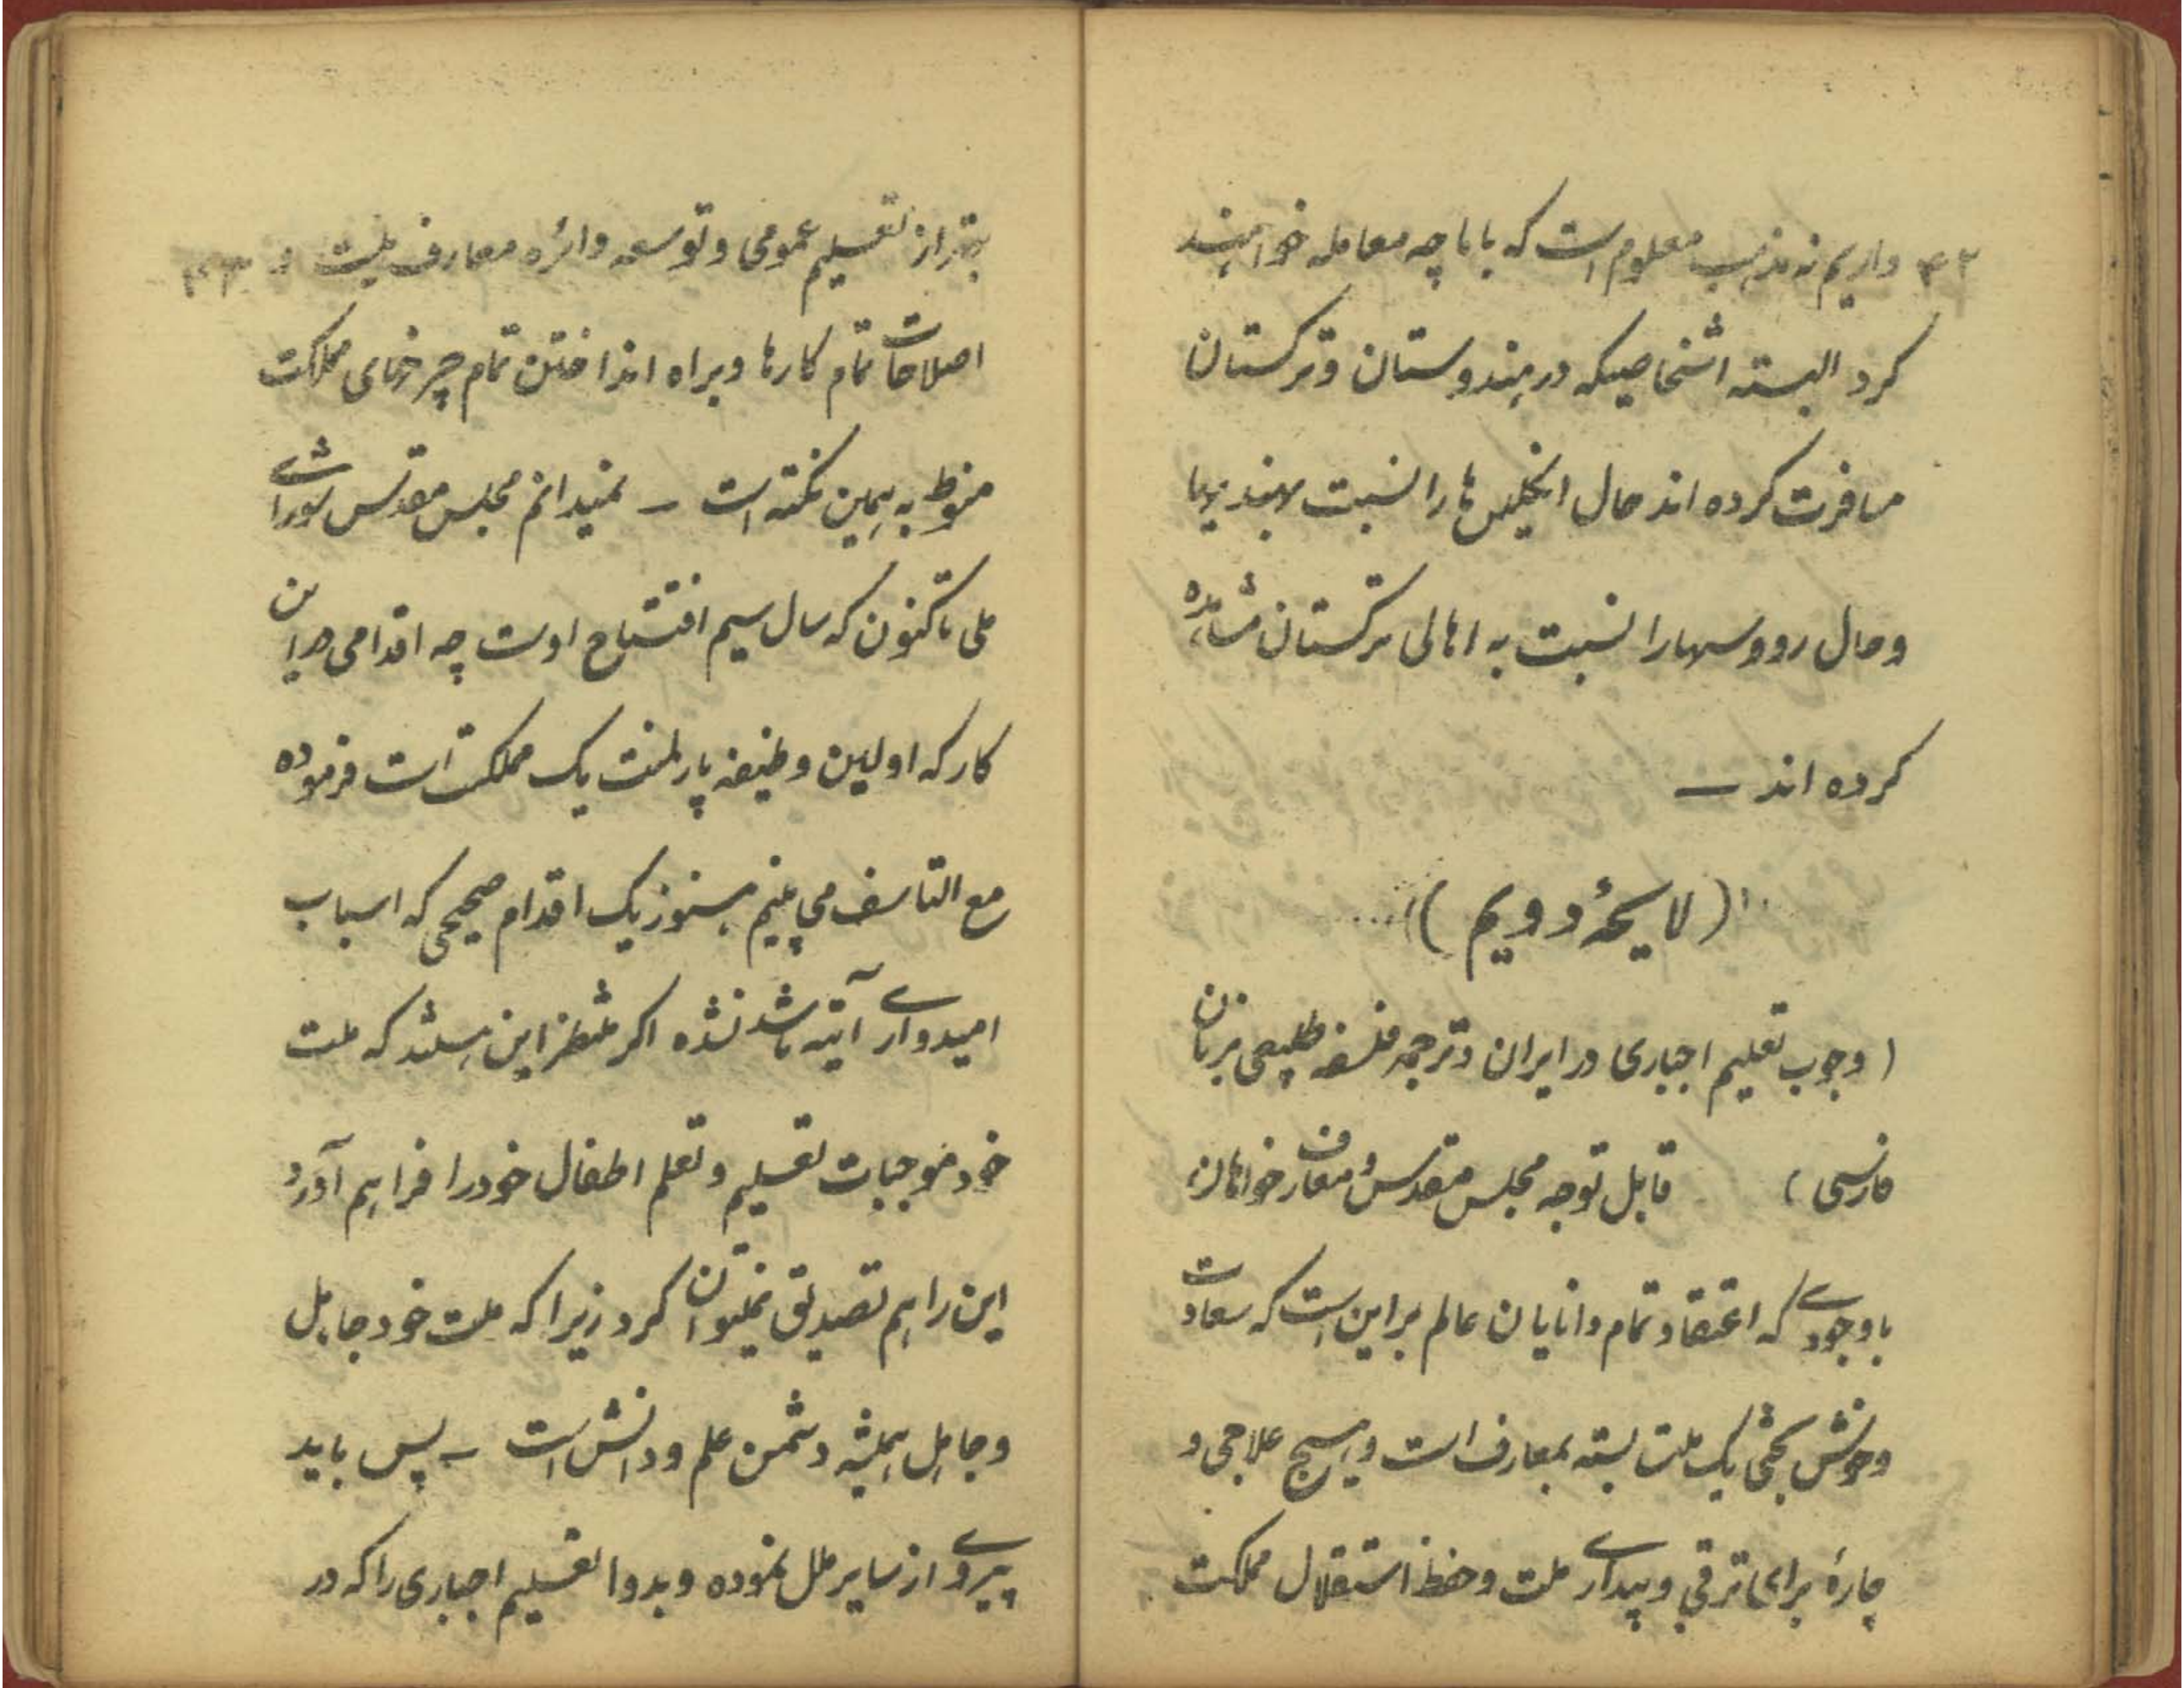 ۴۲ داریم نه مذهب معلوم است که باما چه معامله خواهند
کرد البته اشخاصیکه در هندوستان و ترکستان
مسافرت کرده اند حال انگلیس ها را نسبت بهندیها
و حال رووسها را نسبت به اهالی ترکستان مشاهده
کرده اند —
(لایحهٔ دویم)
(وجوب تعلیم اجباری در ایران و ترجمه فلسفه طبیعی بزبان
فارسی) قابل توجه مجلس مقدس و معارف خواهان
باوجودی که اعتقاد تمام دانایان عالم بر این است که سعادت
و خوش بختی یک ملت بسته بمعارف است و هیچ علاجی و
چارهٔ برای ترقی و بیداری ملت و حفظ استقلال مملکت
بهتر از تعلیم عمومی و توسعه دائره معارف نیست و ۴۳
اصلاحات تمام کارها و براه انداختن تمام چرخهای مملکت
منوط به همین نکته است — نمیدانم مجلس مقدس شورای
ملی تاکنون که سال سیم افتتاح اوست چه اقدامی در این
کار که اولین وظیفه پارلمنت یک مملکت است فرموده
مع التاسف می بینیم هنوز یک اقدام صحیحی که اسباب
امیدواری آتیه باشد نشده اگر منتظر این هستند که ملت
خود موجبات تعلیم و تعلم اطفال خود را فراهم آورد
این را هم تصدیق نمیتوان کرد زیرا که ملت خود جاهل
و جاهل همیشه دشمن علم و دانش است — پس باید
پیروی از سایر ملل نموده و بدوا تعلیم اجباری را که در